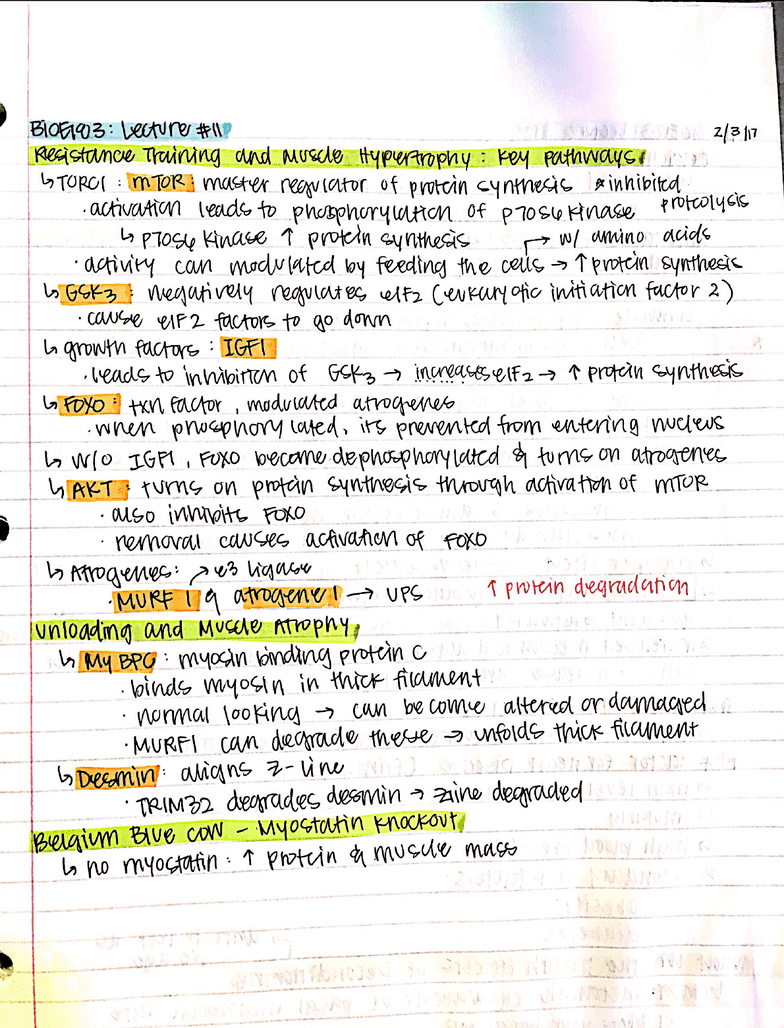 BIOE103: Lecture #11 2/3/17
Resistance Training and Muscle Hypertrophy: Key Pathways
↳ TORC1: mTOR: master regulator of protein synthesis *inhibited proteolysis
· activation leads to phosphorylation of p70S6 Kinase
↳ p70S6 Kinase ↑ protein synthesis → w/ amino acids
· activity can modulated by feeding the cells → ↑ protein synthesis
↳ GSK3: negatively regulates eIF2 (eukaryotic initiation factor 2)
· cause eIF2 factors to go down
↳ growth factors: IGF1
· leads to inhibition of GSK3 → increases eIF2 → ↑ protein synthesis
↳ FOXO: txn factor, modulated atrogenes
· when phosphorylated, its prevented from entering nucleus
↳ w/o IGF1, FOXO become dephosphorylated & turns on atrogenes
↳ AKT: turns on protein synthesis through activation of mTOR
· also inhibits FOXO
· removal causes activation of FOXO
↳ Atrogenes: → e3 ligase
· MURF 1 & atrogene 1 → UPS ↑ protein degradation
Unloading and Muscle Atrophy
↳ MyBPC: myosin binding protein C
· binds myosin in thick filament
· normal looking → can become altered or damaged
· MURF1 can degrade these → unfolds thick filament
↳ Desmin: aligns z-line
· TRIM32 degrades desmin → zline degraded
Belgium Blue Cow - Myostatin Knockout
↳ no myostatin: ↑ protein & muscle mass